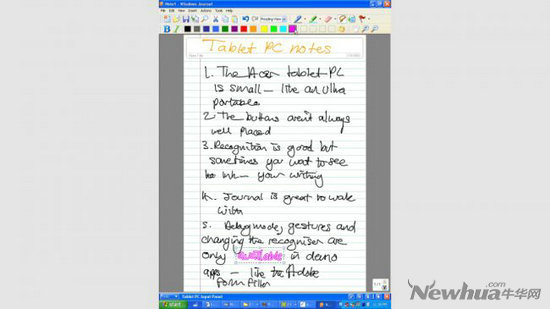 Note1 - Windows Journal
Tablet PC notes
1. The Acer tablet PC
is small – like an ultra
portable
2. The buttons aren't always
well placed
3. Recognition is good but
sometimes you want to see
ink – your writing
4. Journal is great to
with
5. gestures and
changing the recogniser are
only available in demo
apps – like the Adobe
form filler
Tablet PC Input Panel
start
Newhua牛华网